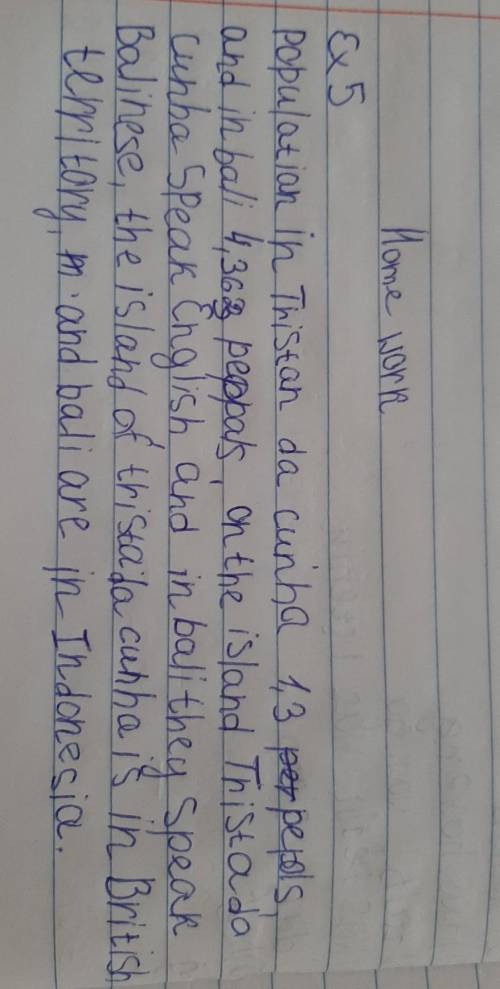 Home work
Ex 5
population in Thistan da cunha 1,3 perpepls,
and in bali 4,362 peppals, on the island Thistada
cunha Speak English and in bali they speak
Balinese, the island of thistada cunha is in British
territory, m. and bali are in Indonesia.